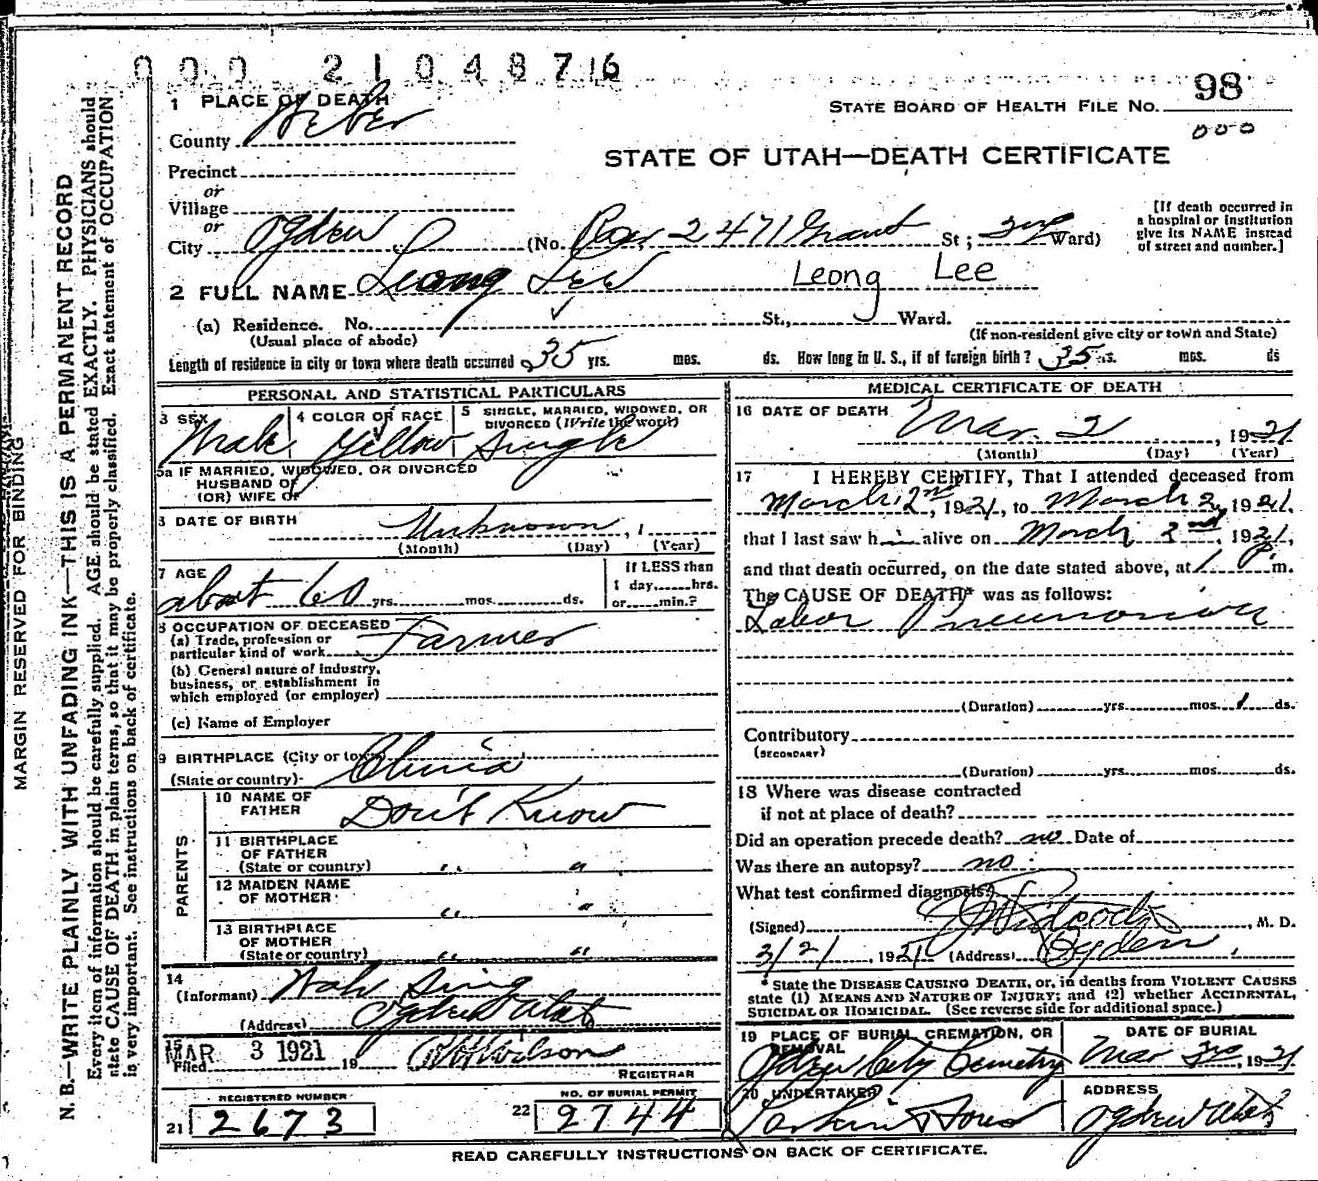 0 0 0 2 1 0 4 8 7 6
1 PLACE OF DEATH
STATE BOARD OF HEALTH FILE No. 98
000
County Weber
STATE OF UTAH—DEATH CERTIFICATE
Precinct
or
Village
or
City Ogden (No. Rear 2471 Grant St; 3rd Ward)
[If death occurred in a hospital or institution give its NAME instead of street and number.]
2 FULL NAME Leong Lee Leong Lee
(a) Residence. No. St., Ward.
(Usual place of abode) (If non-resident give city or town and State)
Length of residence in city or town where death occurred 35 yrs. mos. ds. How long in U. S., if of foreign birth? 35 yrs. mos. ds
PERSONAL AND STATISTICAL PARTICULARS
3 SEX Male
4 COLOR OR RACE Yellow
5 SINGLE, MARRIED, WIDOWED, OR DIVORCED (Write the word) Single
5a IF MARRIED, WIDOWED, OR DIVORCED
HUSBAND OF
(OR) WIFE OF
6 DATE OF BIRTH Unknown, 1
(Month) (Day) (Year)
7 AGE about 60 yrs. mos. ds.
If LESS than
1 day hrs.
or min.?
8 OCCUPATION OF DECEASED
(a) Trade, profession or
particular kind of work Farmer
(b) General nature of industry,
business, or establishment in
which employed (or employer)
(c) Name of Employer
9 BIRTHPLACE (City or town)
(State or country) China
PARENTS
10 NAME OF FATHER Don't Know
11 BIRTHPLACE
OF FATHER
(State or country) " "
12 MAIDEN NAME
OF MOTHER " "
13 BIRTHPLACE
OF MOTHER
(State or country) " "
14
(Informant) Wah Sing
(Address) Ogden Utah
15
Filed MAR 3 1921 19 Wilson
REGISTRAR
REGISTERED NUMBER
21 2673
NO. OF BURIAL PERMIT
22 9744
MEDICAL CERTIFICATE OF DEATH
16 DATE OF DEATH Mar. 2, 1921
(Month) (Day) (Year)
17 I HEREBY CERTIFY, That I attended deceased from
March 2nd, 1921, to March 2, 1921,
that I last saw h i alive on March 2nd, 1921,
and that death occurred, on the date stated above, at 1 P m.
The CAUSE OF DEATH* was as follows:
Labor Pneumonia
(Duration) yrs. mos. 1 ds.
Contributory
(SECONDARY)
(Duration) yrs. mos. ds.
18 Where was disease contracted
if not at place of death?
Did an operation precede death? no Date of
Was there an autopsy? no
What test confirmed diagnosis?
(Signed) , M. D.
3/2/, 1921 (Address) Ogden
* State the DISEASE CAUSING DEATH, or, in deaths from VIOLENT CAUSES
state (1) MEANS AND NATURE OF INJURY; and (2) whether ACCIDENTAL,
SUICIDAL OR HOMICIDAL. (See reverse side for additional space.)
19 PLACE OF BURIAL, CREMATION, OR REMOVAL
Ogden City Cemetery
DATE OF BURIAL
Mar 3rd, 1921
20 UNDERTAKER
Larkin & Sons
ADDRESS
Ogden Utah
READ CAREFULLY INSTRUCTIONS ON BACK OF CERTIFICATE.
MARGIN RESERVED FOR BINDING
N. B.—WRITE PLAINLY WITH UNFADING INK—THIS IS A PERMANENT RECORD
Every item of information should be carefully supplied. AGE should be stated EXACTLY. PHYSICIANS should
state CAUSE OF DEATH in plain terms, so that it may be properly classified. Exact statement of OCCUPATION
is very important. See instructions on back of certificate.